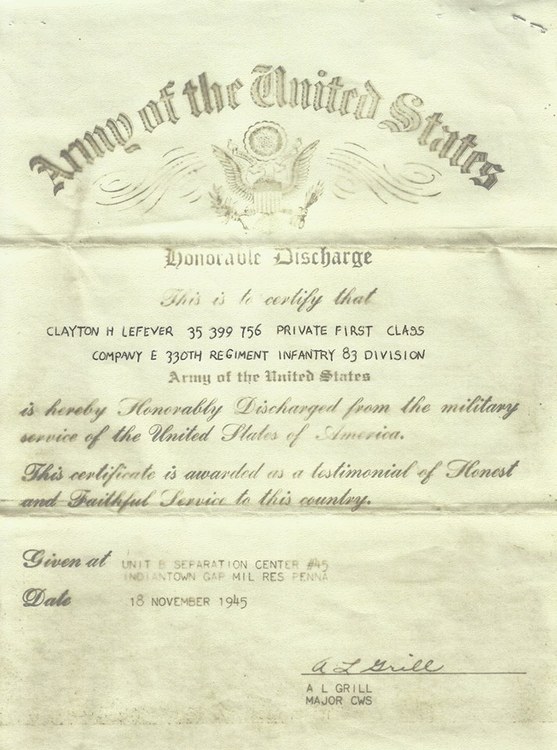 Army of the United States
Honorable Discharge
This is to certify that
CLAYTON H LEFEVER 35 399 756 PRIVATE FIRST CLASS
COMPANY E 330TH REGIMENT INFANTRY 83 DIVISION
Army of the United States
is hereby Honorably Discharged from the military
service of the United States of America.
This certificate is awarded as a testimonial of Honest
and Faithful Service to this country.
Given at UNIT B SEPARATION CENTER #45
INDIANTOWN GAP MIL RES PENNA
Date 18 NOVEMBER 1945
A L Grill
A L GRILL
MAJOR CWS